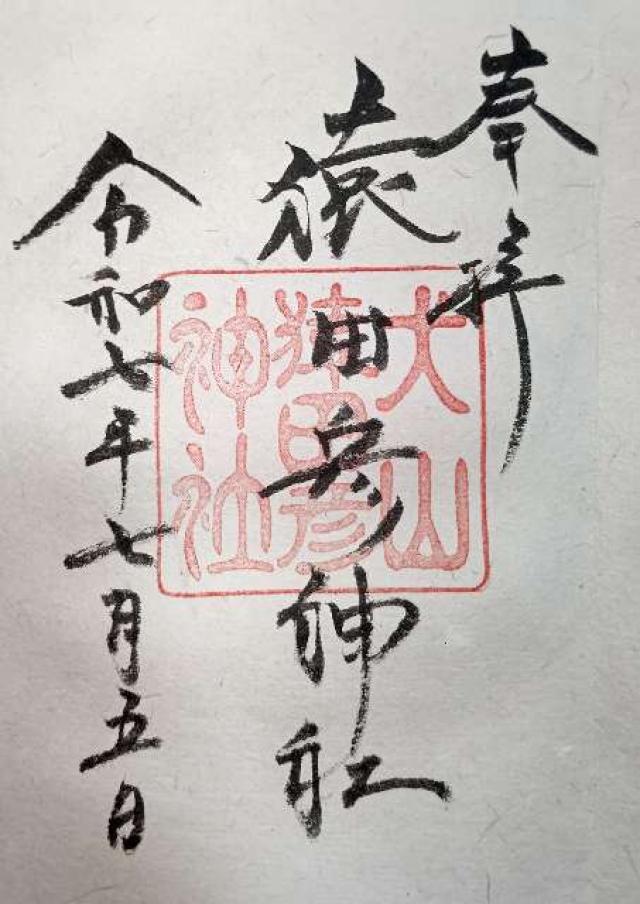 奉拝
猿田彦神社
令和七年七月五日
犬山
猿田彦
神社